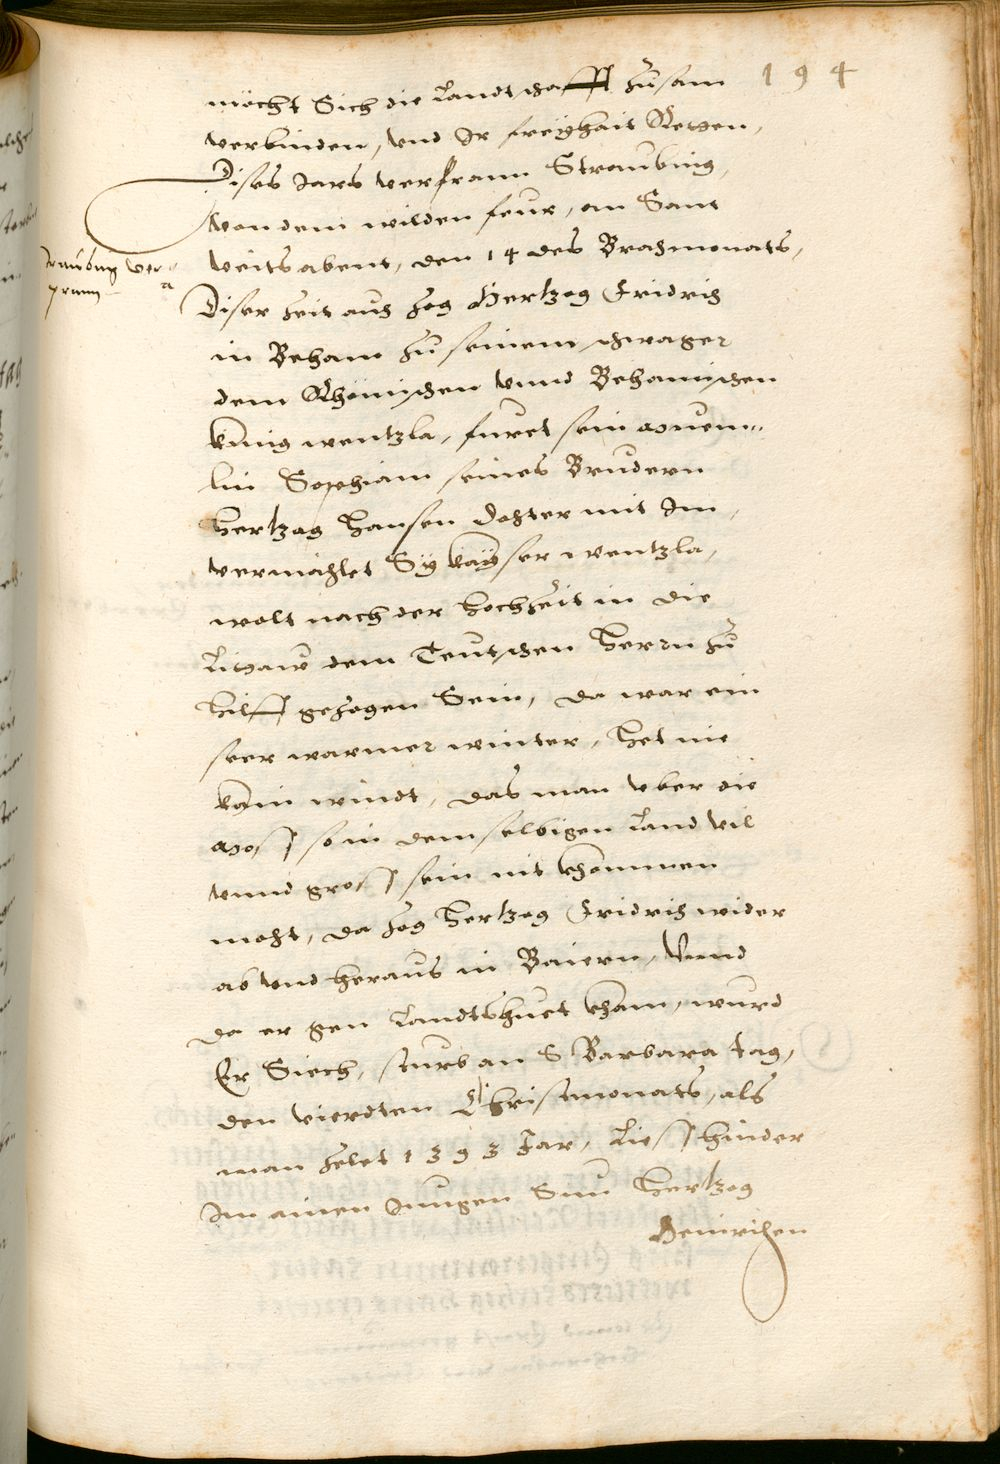 194
möcht Sich die Landtschafft zusam
verbinden, vnd Ir freyhait Retten,
Dises Jars verprann Straubing,
von dem wilden feur, an Sant
Veits abent, den 14 des Brachmonats,
Straubing ver
prann
Diser Zeit auch zog Hertzog Fridrich
in Beham zu seinem schwager
dem Rhömischen vnnd Behamischen
künig wentzla, furet sein
lin Sophiam seines Brudern
Hertzog Hansen Dochter mit Im,
vermächlet Sy kayser wentzla,
wolt nach der hochzeit in die
Littaw dem Teutschen Herrn zu
hilff gezogen Sein, da war ein
seer warmer winter, het nie
kain windt, das man vber die
moss so in dem selbigen Land vil
vnnd gross sein nit khommen
mocht, da zog Hertzog Fridrich wider
ab vnd heraus in Baiern, Vnnd
da er gen Landtshuet kham, wurd
Er Siech, sturb an S Barbara tag,
den vierdten Christmonats, als
man zelet 1393 Jar, Liess hinder
Im ainen Jungen Sun Hertzog
Heinrichen